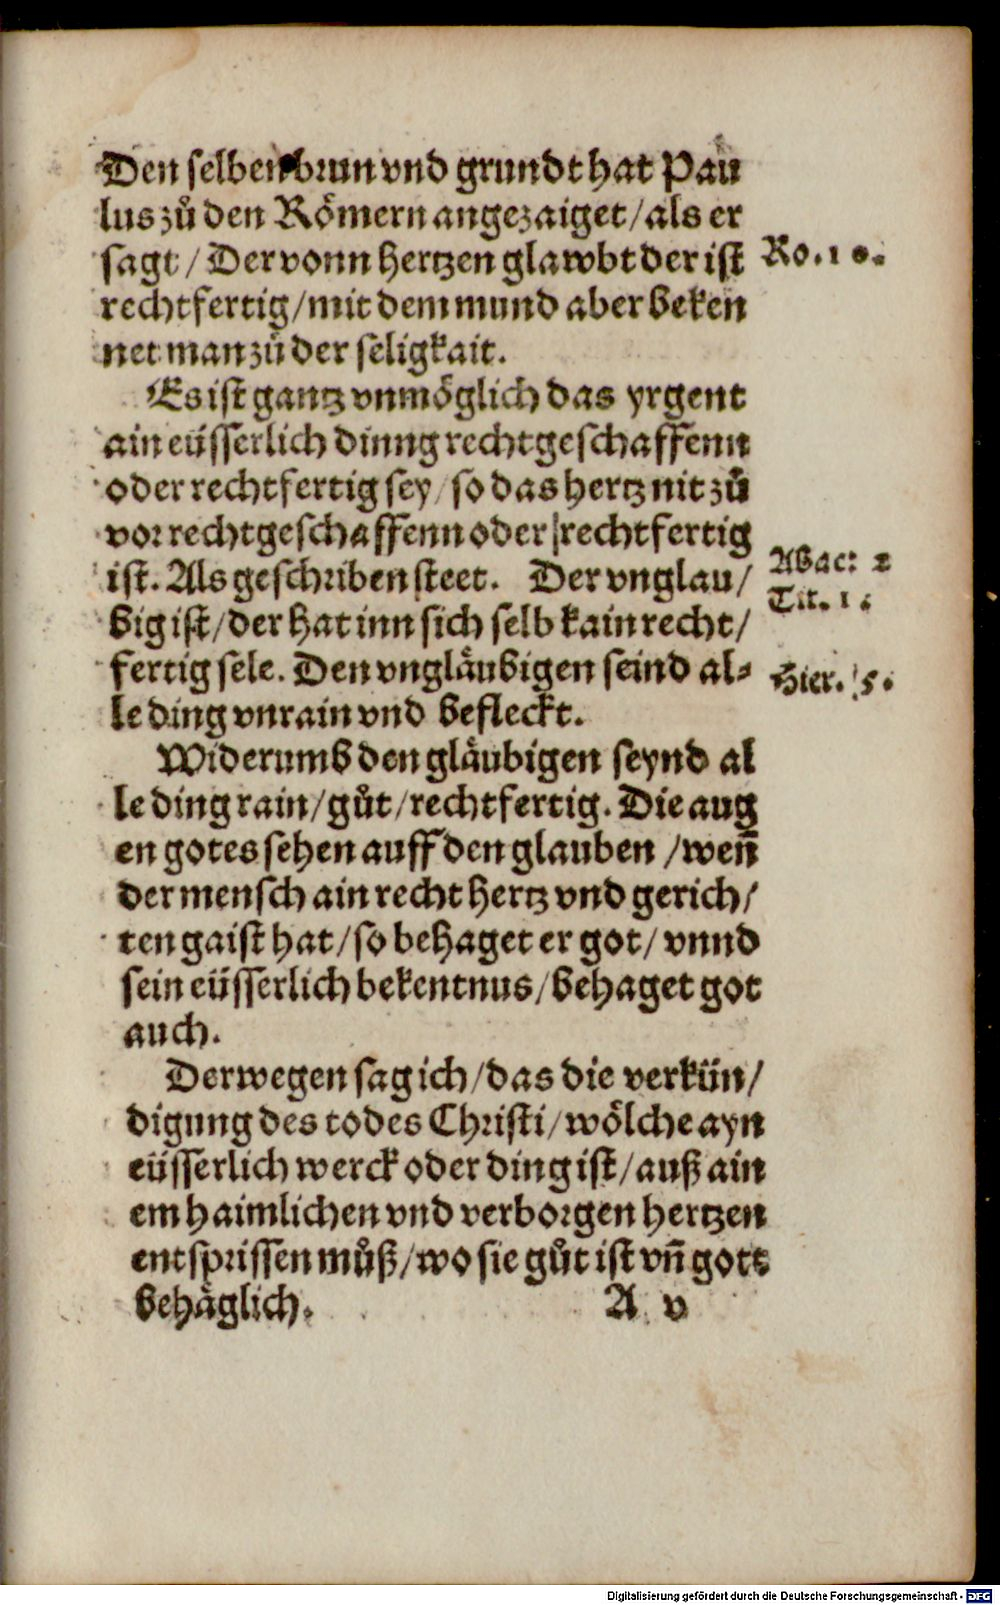 Den selben brun vnd grundt hat Pau
lus zů den Römern angezaiget / als er
sagt / Der vonn hertzen glawbt der ist
Ro. 10.
rechtfertig / mit dem mund aber beken
net man zů der seligkait.
Es ist gantz vnmöglich das yrgent
ain eüsserlich dinng rechtgeschaffenn
oder rechtfertig sey / so das hertz nit zů
vor rechtgeschaffenn oder rechtfertig
ist. Als geschriben steet. Der vnglau /
Abac: 2
Tit. 1.
big ist / der hat inn sich selb kain recht /
fertig sele. Den vngläubigen seind al-
Hier. 5.
le ding vnrain vnd befleckt.
Widerumb den gläubigen seynd al
le ding rain / gůt / rechtfertig. Die aug
en gotes sehen auff den glauben / weñ
der mensch ain recht hertz vnd gerich /
ten gaist hat / so behaget er got / vnnd
sein eüsserlich bekentnus / behaget got
auch.
Derwegen sag ich / das die verkün /
digung des todes Christi / wölche ayn
eüsserlich werck oder ding ist / auß ain
em haimlichen vnd verborgen hertzen
entsprissen můß / wo sie gůt ist vñ gott
behäglich. A v
Digitalisierung gefördert durch die Deutsche Forschungsgemeinschaft - DFG